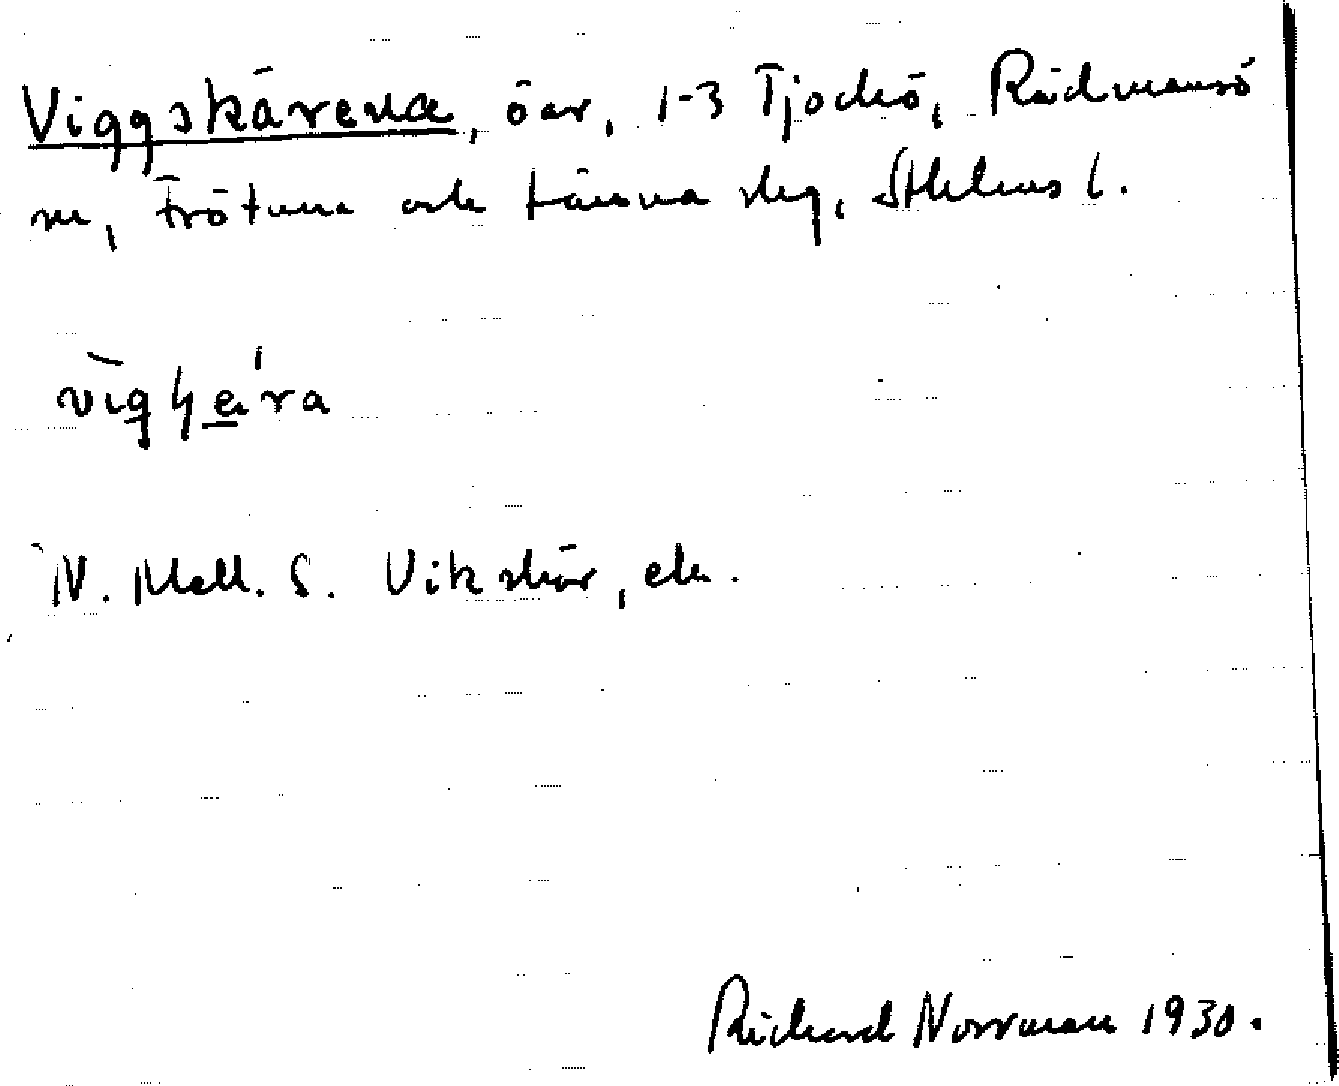 Viggskärena, öar, 1-3 Tjockö, Rådmansö
sn, Frötuna och Länna skg, Sthlms l.
N. Mell. S. Vikskär, ek.
Richard Norrman 1930.